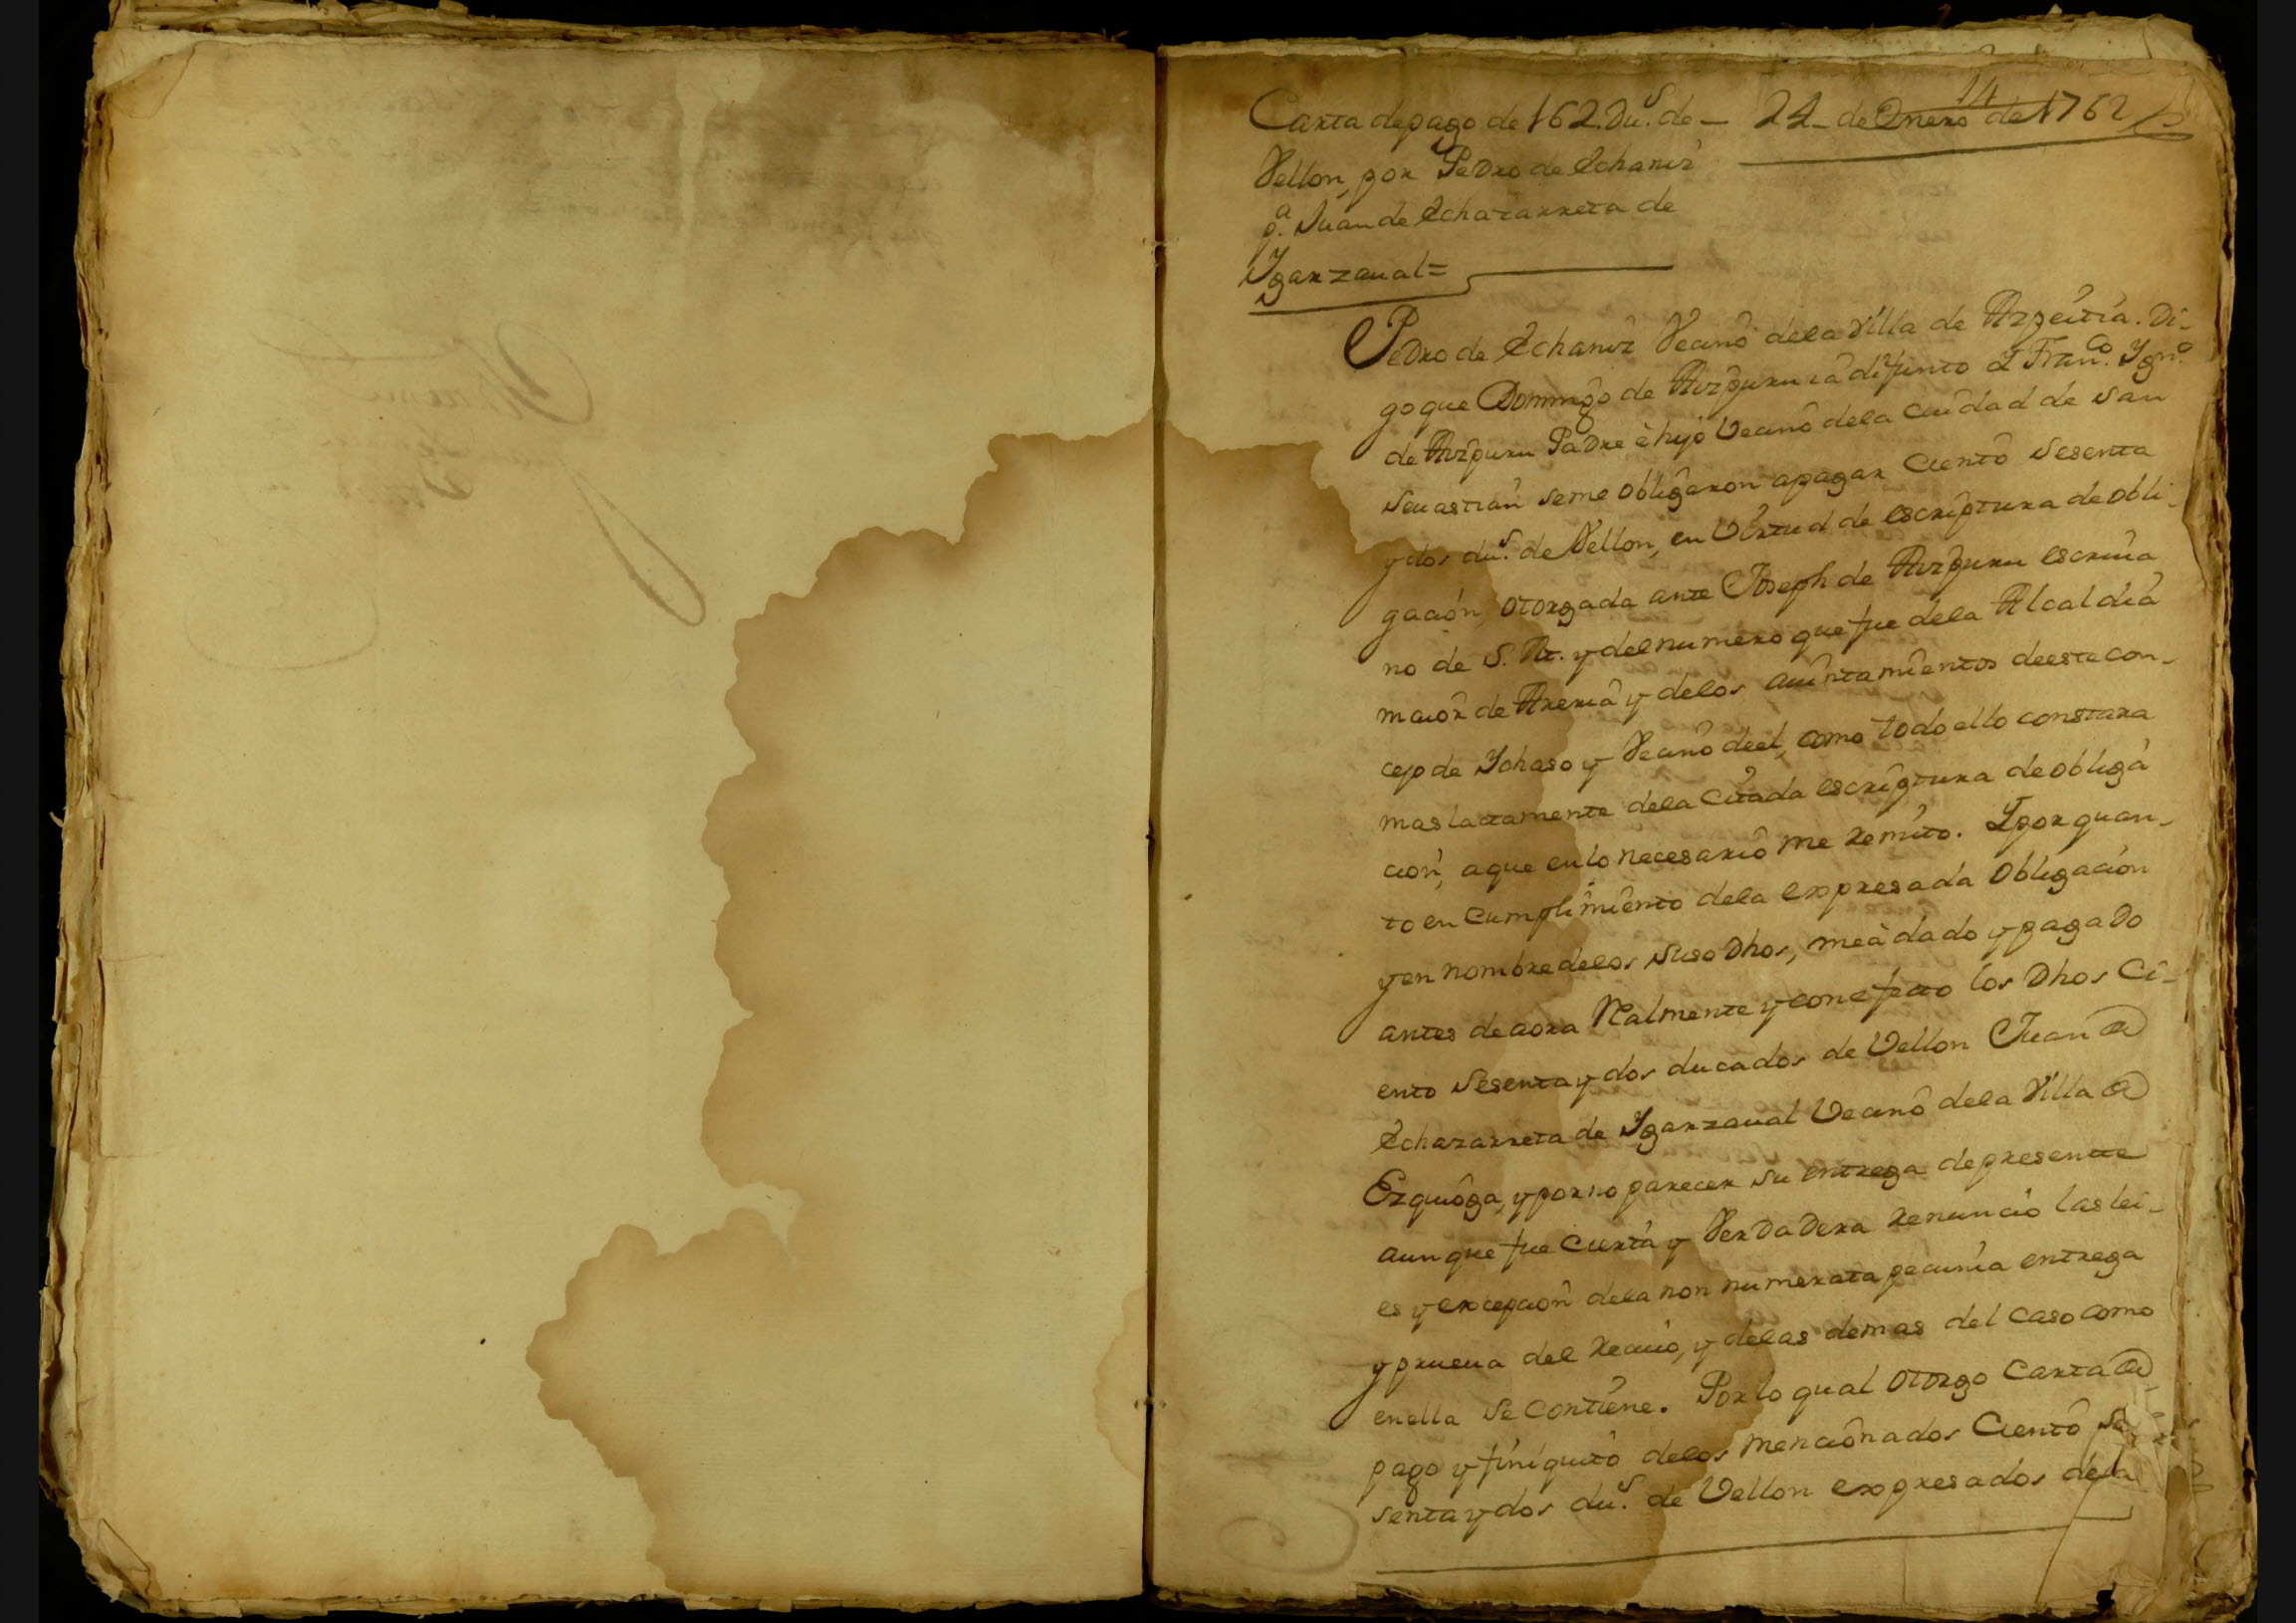 14
Carta de pago de 162. Dus. de — 24 de Enero de 1762
Vellon, por Pedro de Echaniz
pa. Juan de Echazarreta de
Ygarzaual =
Pedro de Echaniz Vecino dela Villa de Azpeitia. Di-
go que Domingo de Aizpuru ia difunto Y Franco. Ygno.
de Aizpuru Padre è hijo Vecino dela Ciudad de San
Seuastian seme obligaron apagar Ciento Sesenta
y dos dus. de Vellon, en Virtud de escriptura de obli-
gacion, otorgada ante Joseph de Aizpuru escriua
no de S. M. y del numero que fue dela Alcaldia
maior de Areria y delos aiuntamientos deeste con-
cejo de Ychaso y Vecino deel, como todo ello constara
mas lactamente dela Citada escriptura de obliga
cion, a que en lo necesario me remito. Y por quan-
to en Cumplimiento dela expresada Obligacion
y en nombre delos Suso Dhos, me à dado y pagado
antes de aora Realmente y con efecto los Dhos Ci-
ento Sesenta y dos ducados de Vellon Juan de
Echazarreta de Ygarzaual Vecino dela Villa de
Ezquioga, y por no parecer su entrega de presente
aunque fue Cierta y Verdadera renuncio las lei-
es y excepcion dela non numerata pecunia entrega
y prueua del reciuo, y delas demas del caso como
en ella se contiene. Por lo qual otorgo Carta de
pago y finiquito delos mencionados Ciento Se
senta y dos dus. de Vellon expresados dela